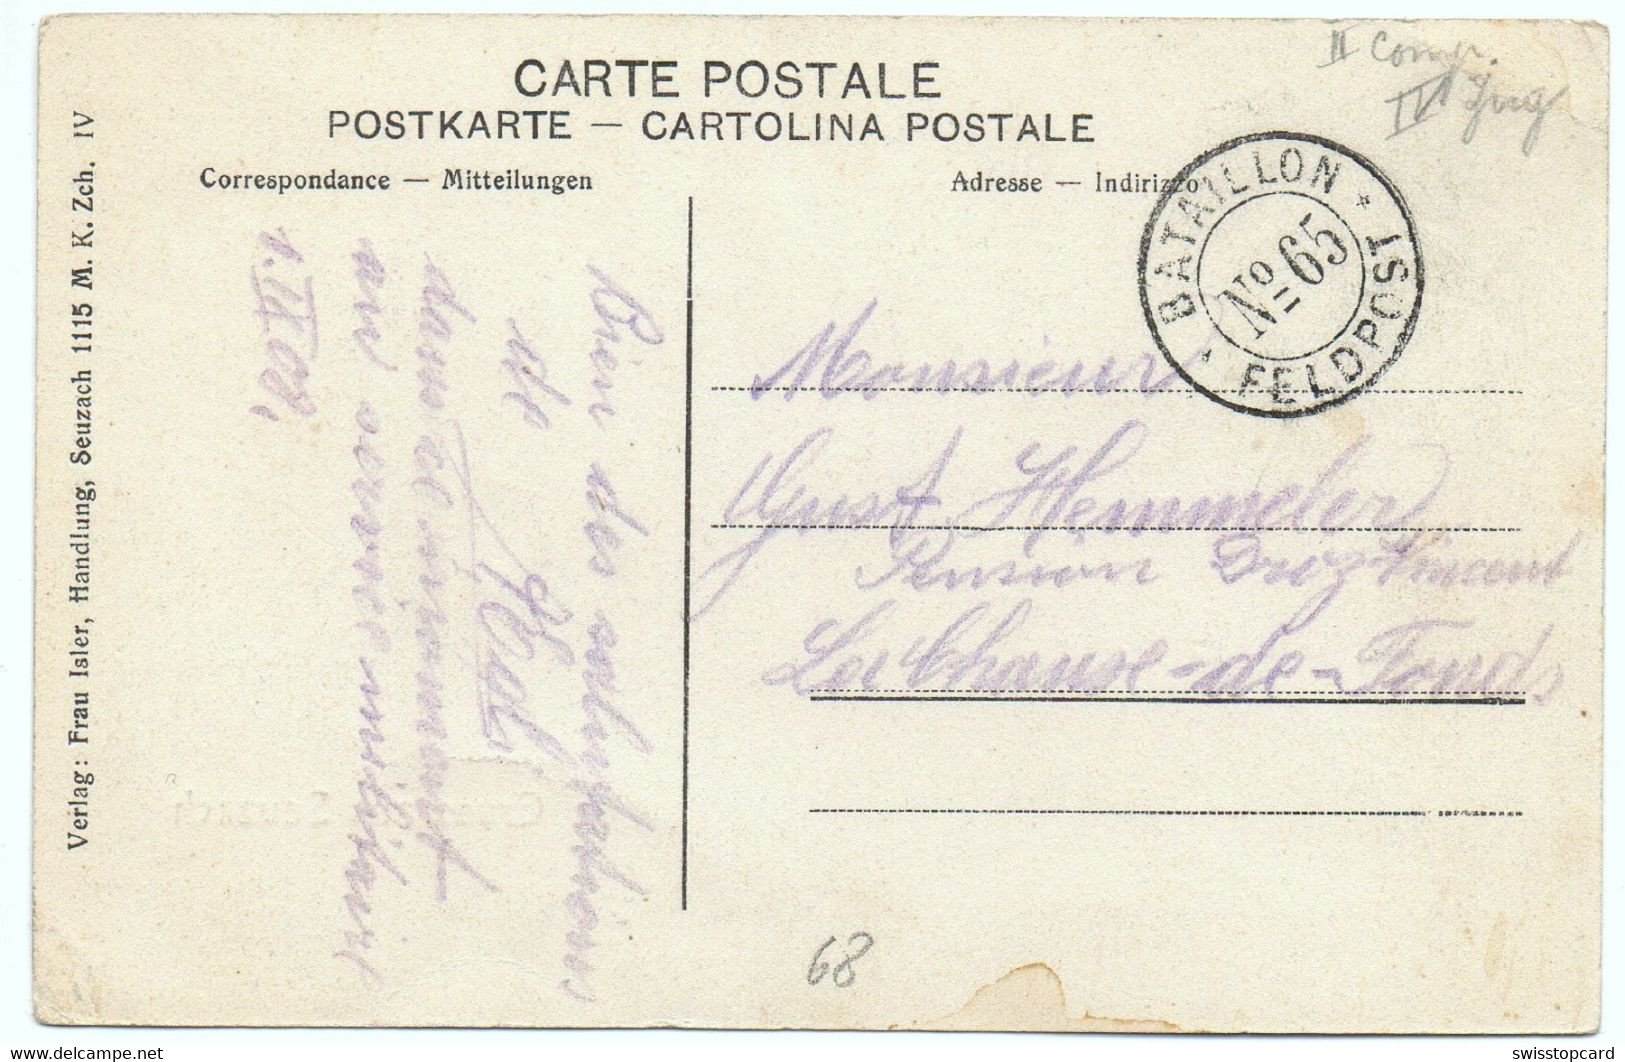 II Comp.
IV Zug
CARTE POSTALE
POSTKARTE — CARTOLINA POSTALE
Correspondance — Mitteilungen
Adresse — Indirizzo
BATAILLON
No 65
FELDPOST
Verlag: Frau Isler, Handlung, Seuzach 1115 M. K. Zch. IV
Bien des salutations
de
dans ce moment
au service militaire
1. IX 08.
Monsieur
Gust Hemmeler
Pension Droz-Vincent
La Chaux-de-Fonds
68
www.delcampe.net
swisstopcard